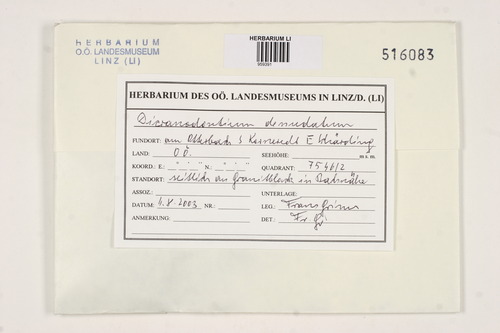 HERBARIUM
O.Ö. LANDESMUSEUM
LINZ (LI)
HERBARIUM LI
516083
HERBARIUM DES OÖ. LANDESMUSEUMS IN LINZ/D. (LI)
Dicranodontium denudatum
FUNDORT: am Otterbach S E Schärding
LAND: OÖ. SEEHÖHE: m s. m.
KOORD.: E: ° ' " N: ° ' " QUADRANT: 7546/2
STANDORT: seitlich an Granitblock in Bachnähe
ASSOZ.: UNTERLAGE:
DATUM: 2003 NR.: LEG.: Franz Grims
ANMERKUNG: DET.: Fr. Gr